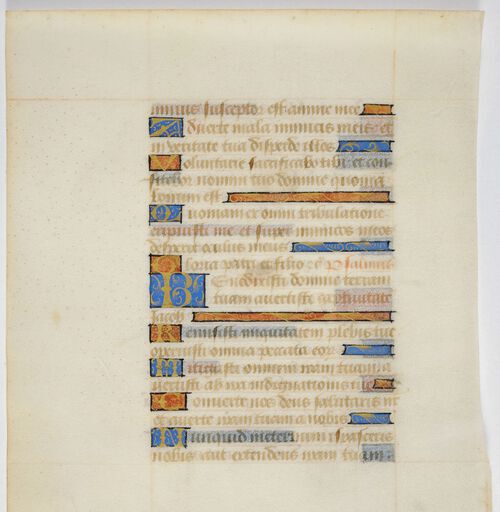 minus susceptor est anime mee
Auerte mala inimicis meis et
in veritate tua disperde illos
Voluntarie sacrificabo tibi et con
fitebor nomini tuo domine quoniam
bonum est
Quoniam ex omni tribulatione
eripuisti me et super inimicos meos
despexit oculus meus
Gloria patri et filio Psalmus
Benedixisti domine terram
tuam auertisti captiuitatem
Jacob
Remisisti iniquitatem plebis tue
operuisti omnia peccata eorum
Mitigasti omnem iram tuam a
uertisti ab ira indignationis tue
Conuerte nos deus salutaris nr
et auerte iram tuam a nobis
Nunquid in eternum irasceris
nobis aut extendens iram tuam